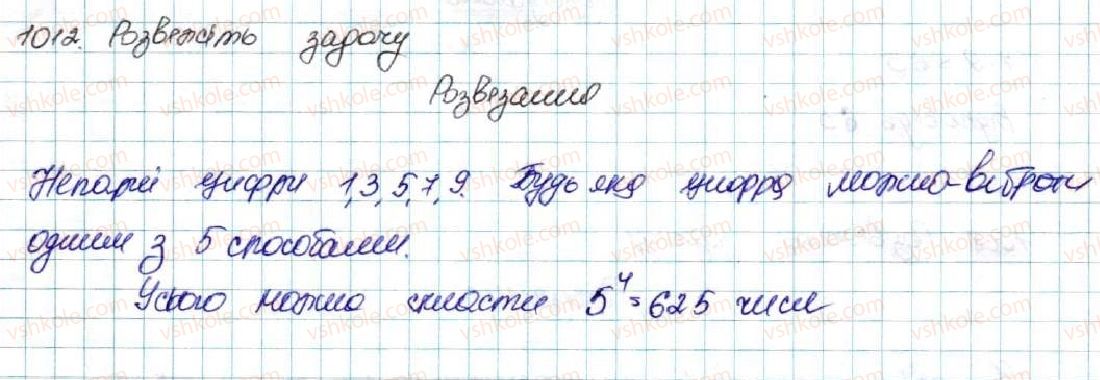 1012. Розвяжіть задачу
Розвязання
Непарні цифри 1,3,5,7,9. Будь яка цифра можна вибрати
одним з 5 способами.
Усього можна скласти 5⁴=625 чисел